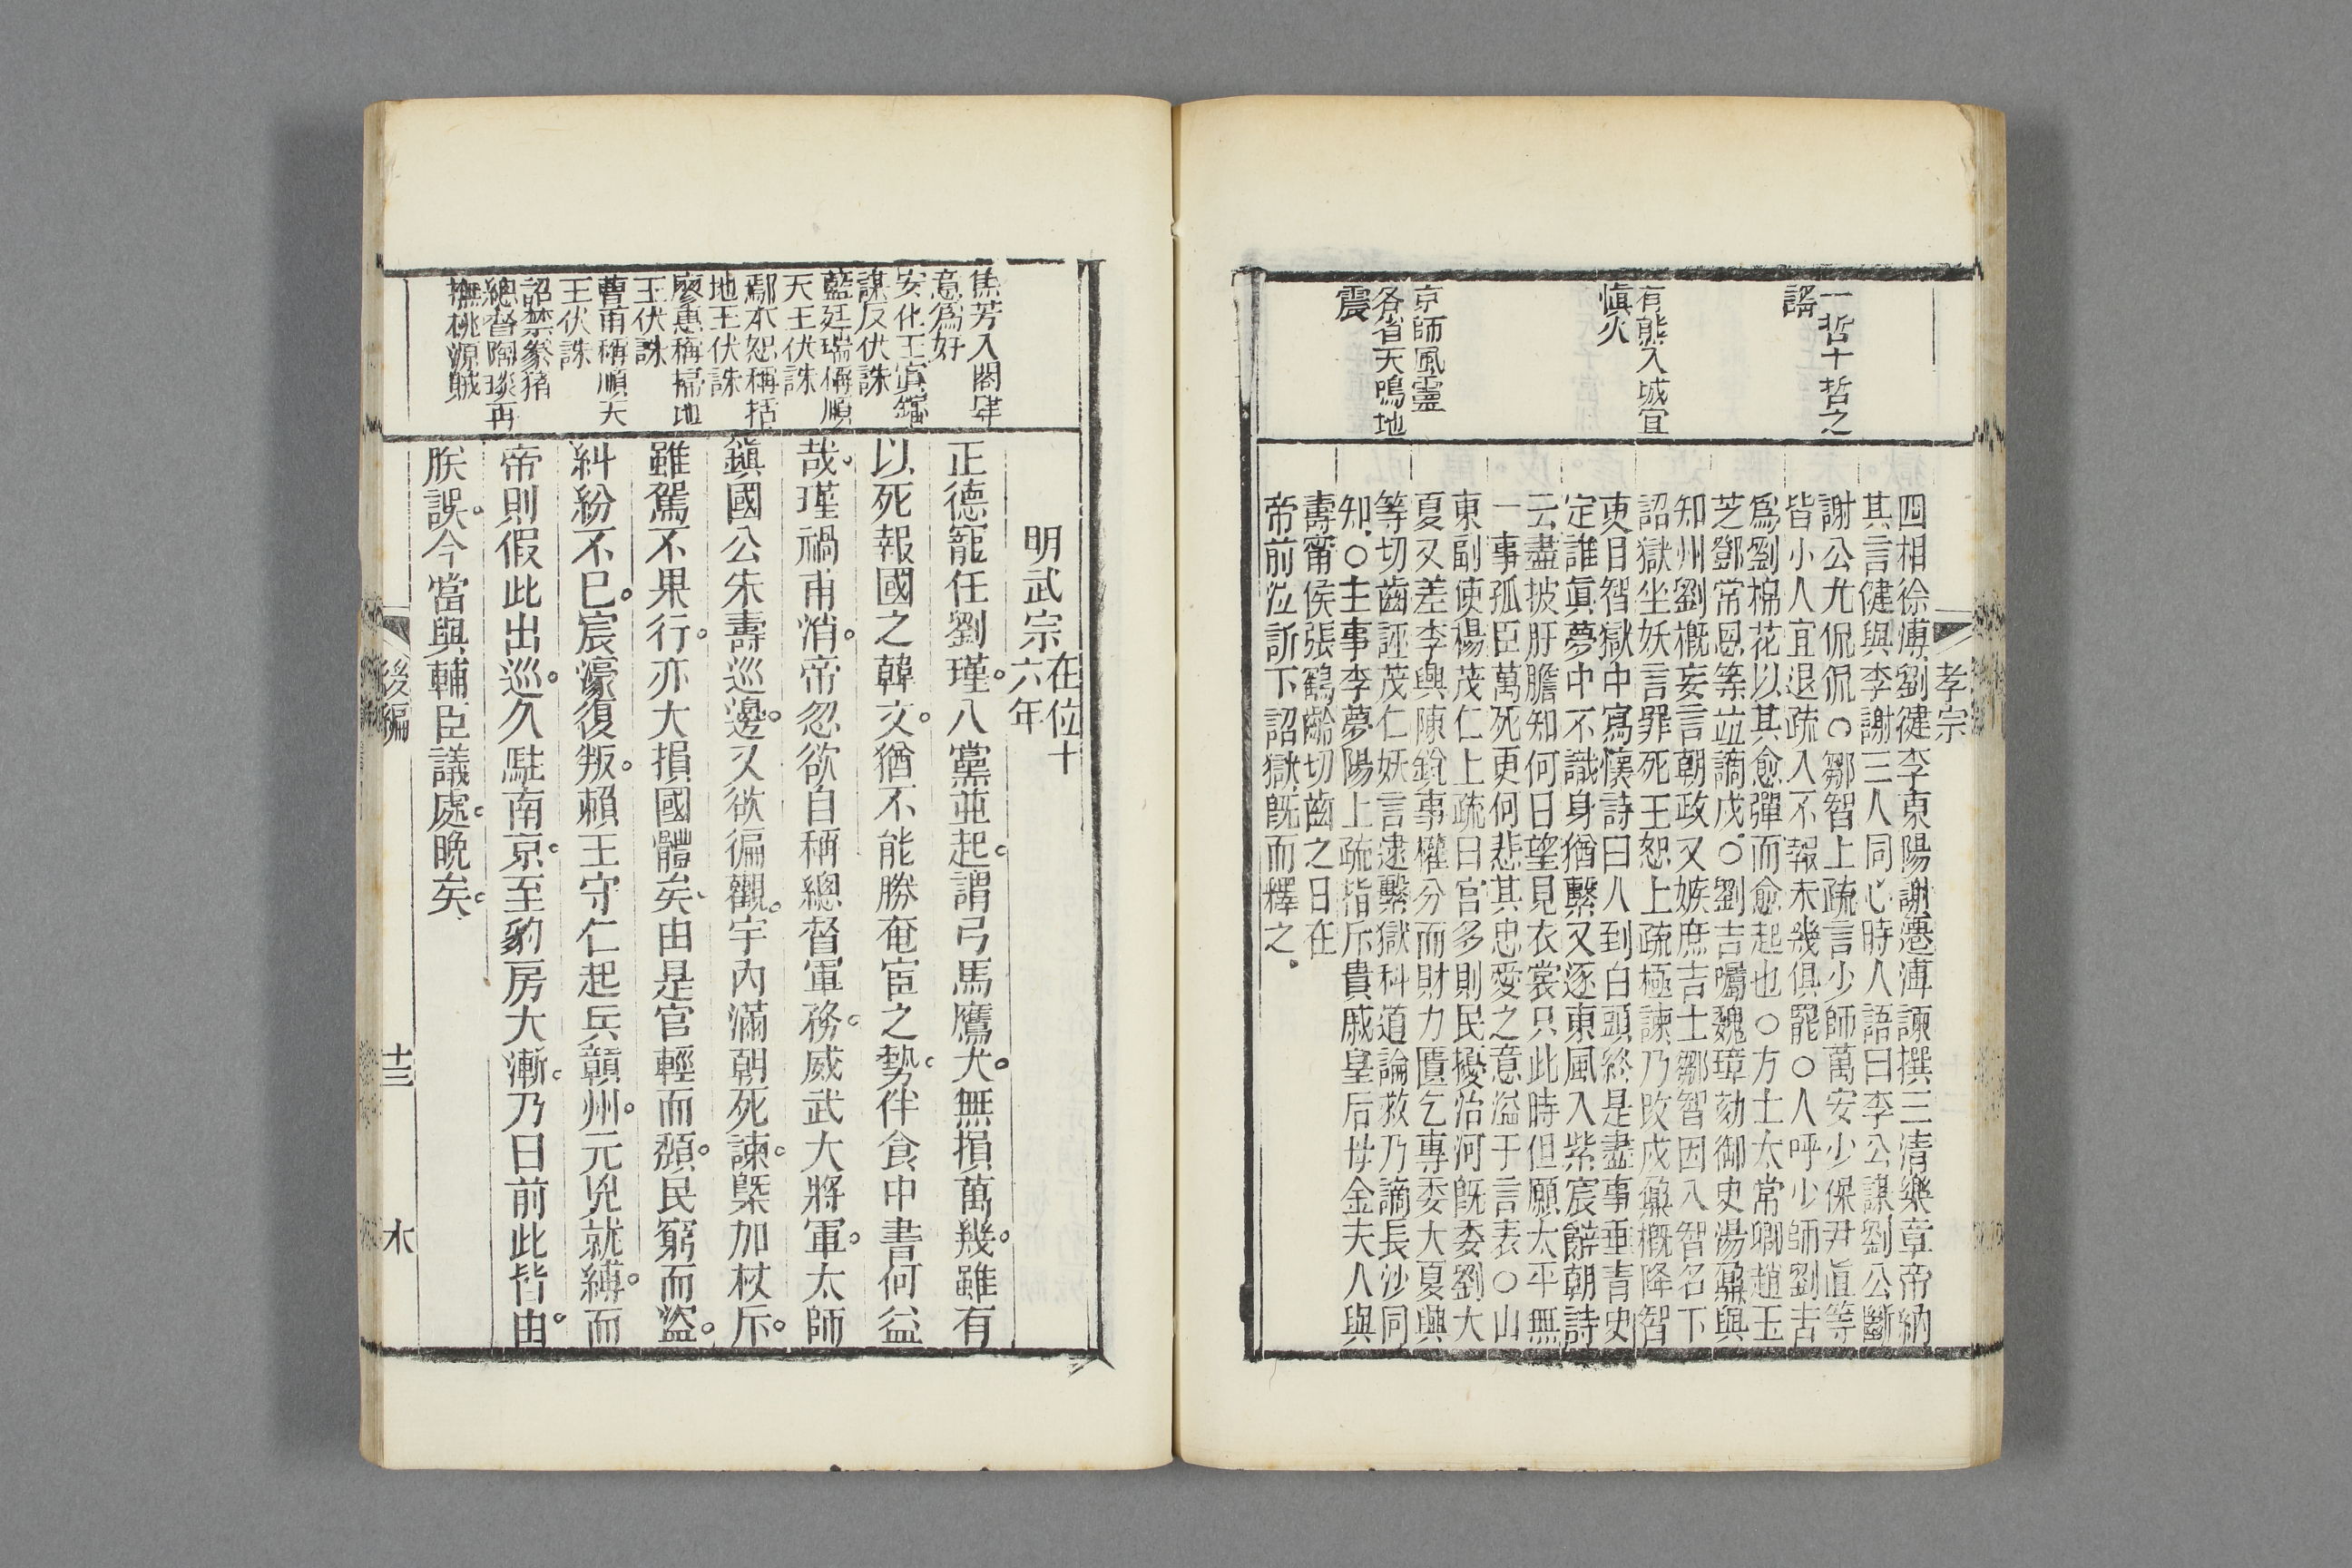 孝宗
一哲十哲之
謠
有熊入城宜
愼火
京師風霾
各省天鳴地
震
四相徐溥劉健李東陽謝遷溥諫撰三清樂章帝納
其言健與李謝三人同心時人語曰李公謀劉公斷
謝公尤侃侃○鄒智上疏言少師萬安少保尹直等
皆小人宜退疏入不報未幾俱罷○人呼少師劉吉
爲劉棉花以其愈彈而愈起也○方士太常卿趙玉
芝鄧常恩等竝謫戍○劉吉囑魏璋劾御史湯鼐與
知州劉概妄言朝政又嫉庶吉士鄒智因入智名下
詔獄坐妖言罪死王恕上疏極諫乃改戍鼐概降智
吏目智獄中寫懷詩曰人到白頭終是盡事垂青史
定誰眞夢中不識身猶繫又逐東風入紫宸辭朝詩
云盡披肝膽知何日望見衣裳只此時但願太平無
一事孤臣萬死更何悲其忠愛之意溢于言表○山
東副使楊茂仁上疏曰官多則民擾治河旣委劉大
夏又差李興陳銳事權分而財力匱乞專委大夏興
等切齒誣茂仁妖言逮繫獄科道論救乃謫長沙同
知○主事李夢陽上疏指斥貴戚皇后母金夫人與
壽甯侯張鶴齡切齒之日在
帝前泣訴下詔獄旣而釋之
焦芳入閣肆
意爲奸
安化王寘鐇
謀反伏誅
藍廷瑞稱順
天王伏誅
鄢本恕稱括
地王伏誅
廖惠稱掃地
王伏誅
曹甫稱順天
王伏誅
詔禁豢猪
總督陶琰再
撫桃源賊
明武宗在位十六年
正德寵任劉瑾。八黨並起。謂弓馬鷹犬。無損萬幾。雖有
以死報國之韓文。猶不能勝奄宦之勢。伴食中書何益
哉。瑾禍甫消。帝忽欲自稱總督軍務。威武大將軍。太師
鎮國公朱壽巡邊。又欲徧觀。宇內滿朝死諫。槩加杖斥。
雖駕不果行。亦大損國體矣、由是官輕而頹。民窮而盜。
糾紛不已。宸濠復叛。賴王守仁起兵贛州。元兇就縛。而
帝則假此出巡。久駐南京。至豹房大漸。乃曰前此皆由。
朕誤。今當與輔臣議處。晚矣。
後編
十三
木